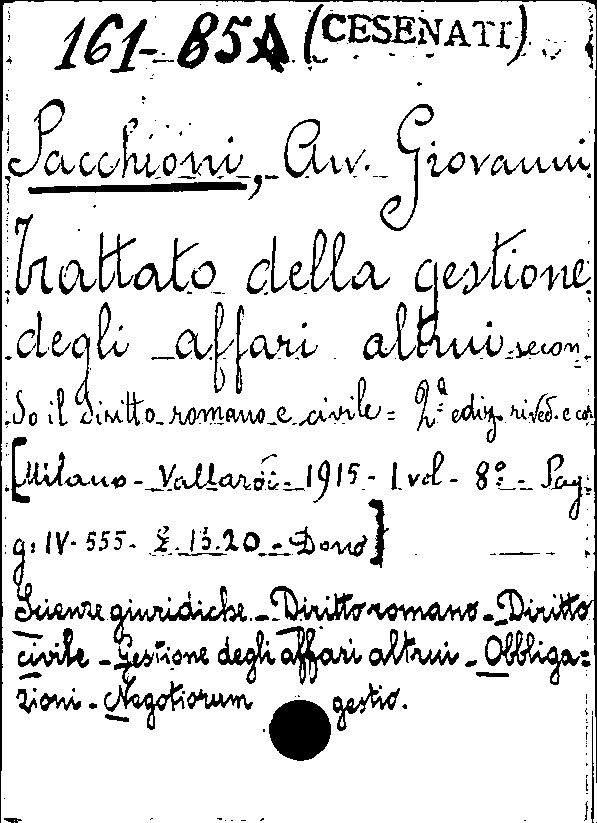 161-85A (CESENATI)
Pacchioni, Avv. Giovanni
Trattato della gestione
degli affari altrui secon
do il diritto romano e civile = 2ª ediz. rived. e cor
[Milano - Vallardi - 1915 - 1 vol - 8º - Pag
g: IV-555- £.13.20 - Dono]
Scienze giuridiche - Diritto romano - Diritto
civile - Gestione degli affari altrui - Obbliga=
zioni - Negotiorum gestio.